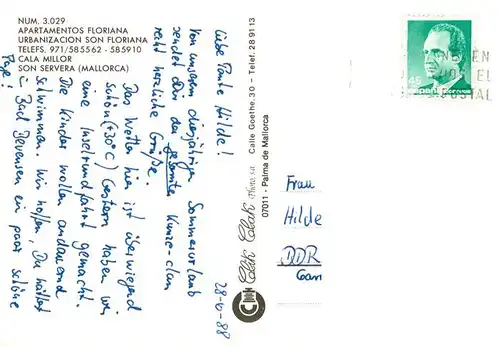 NUM. 3.029
APARTAMENTOS FLORIANA
URBANIZACION SON FLORIANA
TELEFS. 971/585562 - 585910
CALA MILLOR
SON SERVERA (MALLORCA)
28-6-88
Liebe Tante Hilde!
Von unserem diesjährigen Sommerurlaub
sendet dir der gesamten Kunze-clan
recht herzliche Grüße.
Das Wetter hier ist überwiegend
schön (+30°C) Gestern haben wir
eine Inselrundfahrt gemacht.
Die Kinder wollen andauernd
schwimmen. Wir hoffen, Du hattest
in Bad Bevensen ein paar schöne
Tage!
Clik Clak
Calle Goethe, 30 - Telef. 28 91 13
07011 - Palma de Mallorca
45
españa correos
POSTAL
Frau
Hilde
DDR